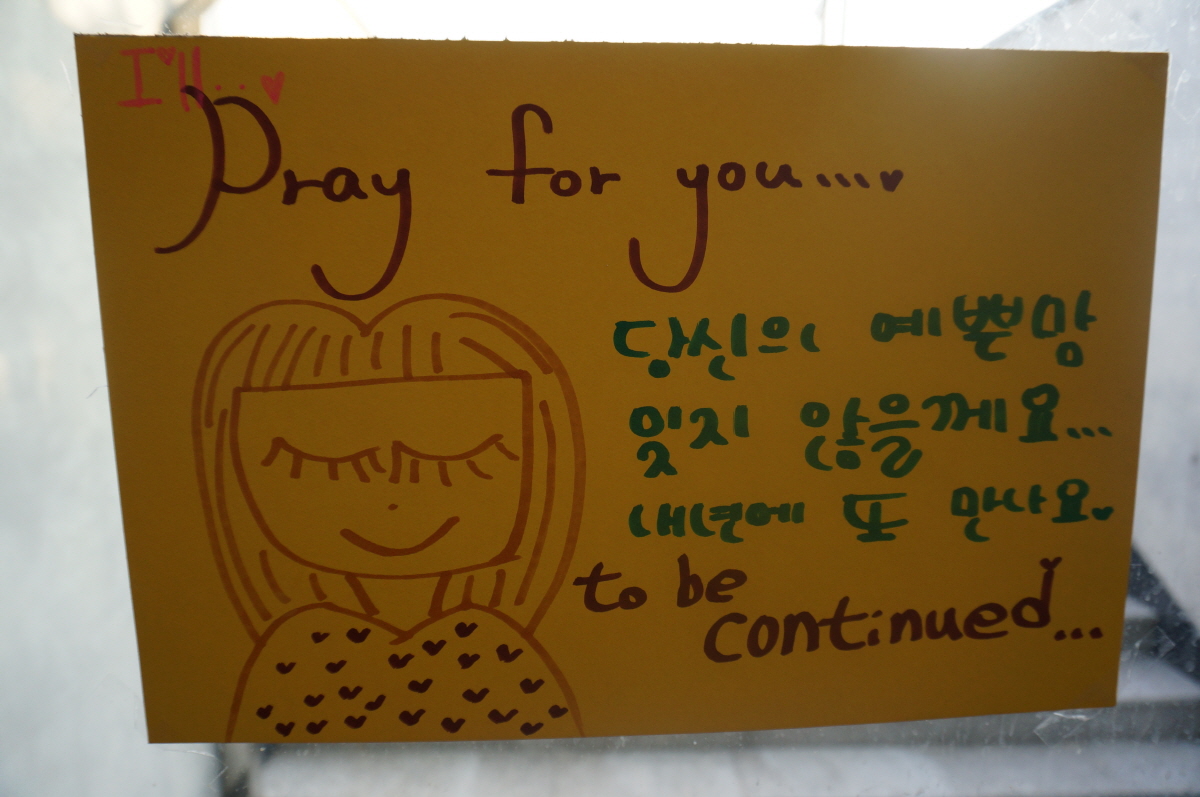 I'll..♥
Pray for you....♥
당신의 예쁜맘
잊지 않을께요...
내년에 또 만나요♥
to be
continued...